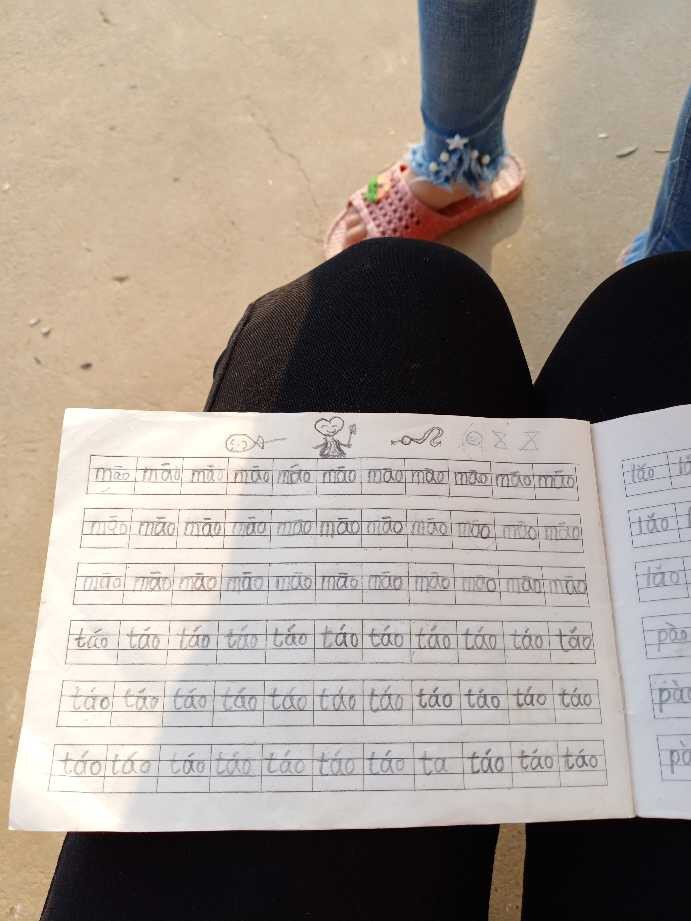 māo māo māo māo māo māo māo māo māo māo māo
māo māo māo māo māo māo māo māo māo māo māo
māo māo māo māo māo māo māo māo māo māo māo
táo táo táo táo táo táo táo táo táo táo táo
táo táo táo táo táo táo táo táo táo táo táo
táo táo táo táo táo táo táo ta táo táo táo
lǎo
lǎo
lǎo
pào